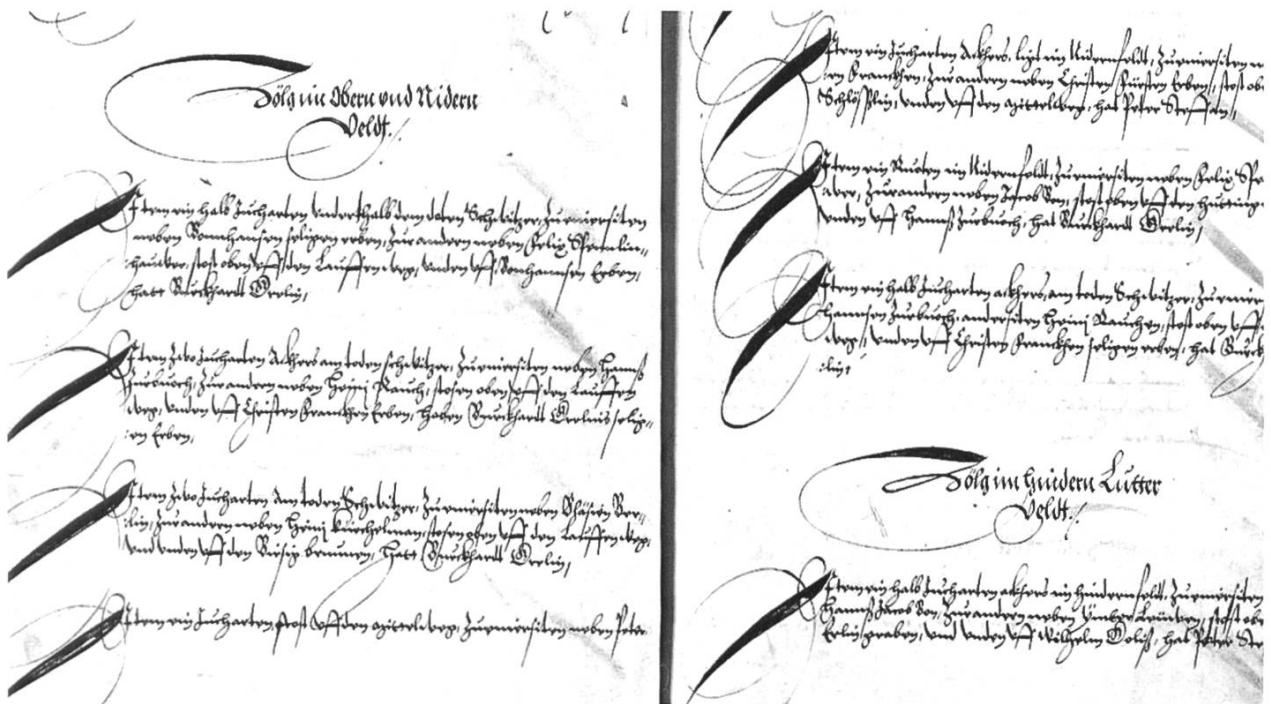 Volg im Obern vnd Nidern
Veldt.
Item ein halb Jucharten vnderthalb dem doten Schwitzer, Zu einer siten
neben Vonhausen seligen erben, Zur andern neben Felix Spenlin-
hauwer, stost oben vff den Lauffen weg, vnden vff Erben,
hatt Burckhardt Örelin,
Item Zwo Jucharten Ackhers am toden schwitzer, Zu einer siten neben Hanns
Zurbuoch, Zur andern neben Heini Rauch, stosen oben vff den Lauffen
weg, vnden vff Christen Franckhen Erben, haben Burckhardt Örelins selig-
en Erben,
Item Zwo Jucharten Am toden Schwitzer, Zu einer siten neben Bläsien Ör-
lin, Zur andern neben Heini Küechelman, stosen oben vff den Lauffen weg,
vnd vnden vff den brunnen, hatt Burckhardt Örelin,
Item ein Jucharten stost vff den Mittelweg, Zu einer siten neben Peter
Item ein Jucharten Ackhers, ligt im Nidernfeldt, Zu einer siten n
en Franckhen, Zur andern neben Christen Fürsten Erben, stost ob
Schlösslin, vnden vff den Mittelweg, hat Peter Steffan,
Item ein Ruoten im Nidernfeldt, Zu einer siten neben Felix Spe
wer, Zur andern neben Jacob Von, stost oben vff den
vnden vff Hannß Zurbuoch, hat Burckhardt Örelin,
Item ein halb Jucharten ackhers, am toden Schwitzer, Zu einer
Hannsen Zurbuoch, andersiten Heini Rauchen, stost oben vff
weg, vnden vff Christen Franckhen seligen erben, hat Burck
elin,
Volg im hindern Lutter
Veldt.
Item ein halb Jucharten ackhers im hindernfeldt, Zu einer siten
Hannß Jacob Von, Zur andern neben stost obe
graben, vnd vnden vff Wilhelm hat Peter Ste